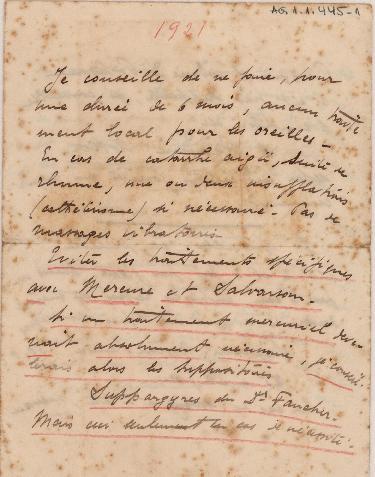 AG.1.1.445-1
1921
Je conseille de ne faire, pour
une durée de 6 mois, aucun traite
ment local pour les oreilles -
En cas de catarrhe aigü, suite de
rhume, une ou deux insufflations
(cathétérisme) si nécessaire - Pas de
massages vibratoires
Eviter les traitements spécifiques
avec Mercure et Salvarsan -
si un traitement mercuriel deve-
nait absolument nécessaire, je conseil-
lerais alors les suppositoires
Suppargyres du Dr Faucher.
Mais ceci seulement en cas de nécessité -